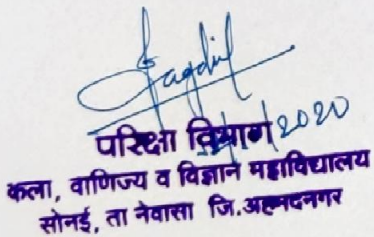 परिक्षा विभाग
2020
कला, वाणिज्य व विज्ञान महाविद्यालय
सोनई, ता नेवासा जि.अहमदनगर